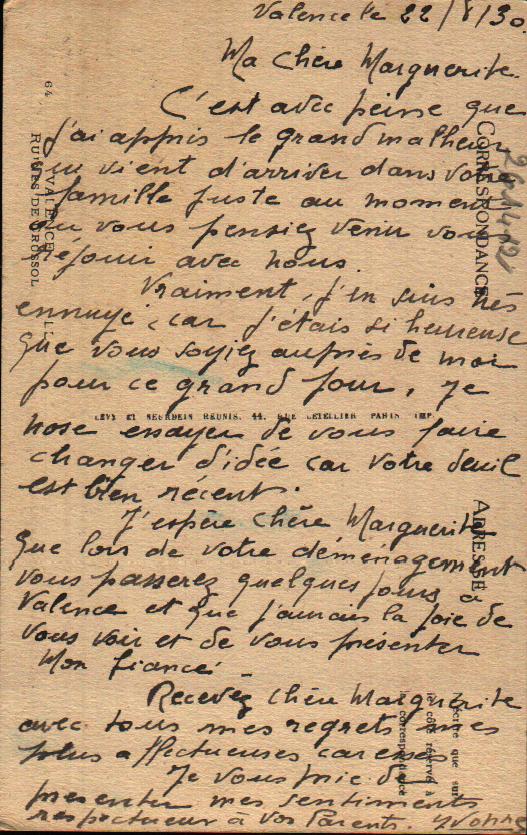 Valence le 22/8/30.
Ma Chère Marguerite.
C'est avec peine que
j'ai appris le grand malheur
qui vient d'arriver dans votre
famille juste au moment
ou vous pensiez venir vous
réjouir avec nous.
Vraiment, j'en suis très
ennuyé, car j'étais si heureuse
que vous soyiez auprès de moi
pour ce grand jour, Je
nose essayer de vous faire
changer d'idée car votre deuil
est bien récent.
J'espère chère Marguerite
que lors de votre déménagement
vous passerez quelques jours
Valence et que j'aurais la joie de
vous voir et de vous présenter
Mon fiancé
Recevez chère Marguerite
avec tous mes regrets mes
plus affectueuses caresses
Je vous prie de
presenter mes sentiments
respectueux à vos Parents. Yvonne
CORRESPONDANCE
ADRESSE
64
VALENCE
RUINES DE CRUSSOL
LL
LEVY ET NEURDEIN REUNIS, 44, RUE LETELLIER PARIS IMP.
N'écrire que sur
le côté réservé à
la correspondance